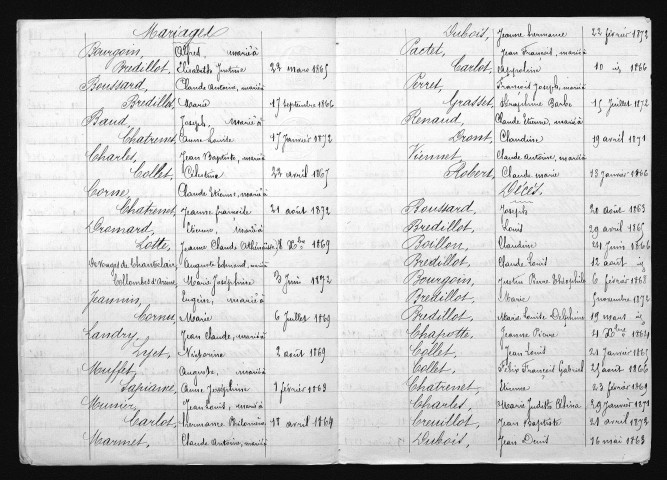 Mariages
Bourgoin, Alfred, marié à
Bredillot, Elisabeth Justine 22 mars 1865
Boussard, Claude Antoine, marié à
Bredillot, Marie 17 septembre 1866
Baud, Joseph, marié à
Chatrenet, Anne Louise 17 Janvier 1872
Charles, Jean Baptiste, marié à
Collet, Célestine 22 avril 1867
Corne, Claude Etienne, marié à
Chatrenet, Jeanne françoise 21 août 1872
Dromard, Etienne, marié à
Lotte, Jeanne Claude 8 Xbre 1869
De Vouges de Chanteclair, Auguste Edmond, marié à
Collombes d'Arcine, Marie Joséphine 3 Juin 1872
Jeannin, Eugène, marié à
Cornu, Marie 6 Juillet 1869
Landry, Jean Claude, marié à
2 août 1869
Muffet, Auguste, marié à
Anne Joséphine 1 février 1863
Munier, Jean Louis, marié à
Carlot, Hermance Philomène 18 avril 1864
Marmet, Claude Antoine, marié à
Dubois, Jeanne hermance 22 février 1872
Pactet, Jean François, marié à
Carlot, Appoline 10 id 1866
Perret, François Joseph, marié à
Grasset, Séraphine Barbe 15 Juillet 1872
Renaud, Claude Etienne, marié à
Dront, Claudine 19 avril 1871
Viennet, Claude Antoine, marié à
Robert, Claude marie 18 janvier 1866
Décès
Boussard, Joseph 20 août 1863
Bredillot, Louis 29 avril 1865
Boillon, Claudine 21 juin 1866
Bredillot, Claude Louis 12 août id
Bourgoin, Justin Pierre Théophile 6 février 1868
Bredillot, Marie novembre 1872
Bredillot, Marie Louise Delphine 19 mars id
Chapotte, Jeanne Pierre 21 Xbre 1864
Collet, Jean Louis 21 Janvier 1865
Collet, Félix François Gabriel 25 août 1866
Chatrenet, Etienne 23 février 1869
Charles, Marie Judith 29 Janvier 1871
Creuillot, Jean Baptiste 21 avril 1872
Dubois, Jean Denis 16 mai 1863